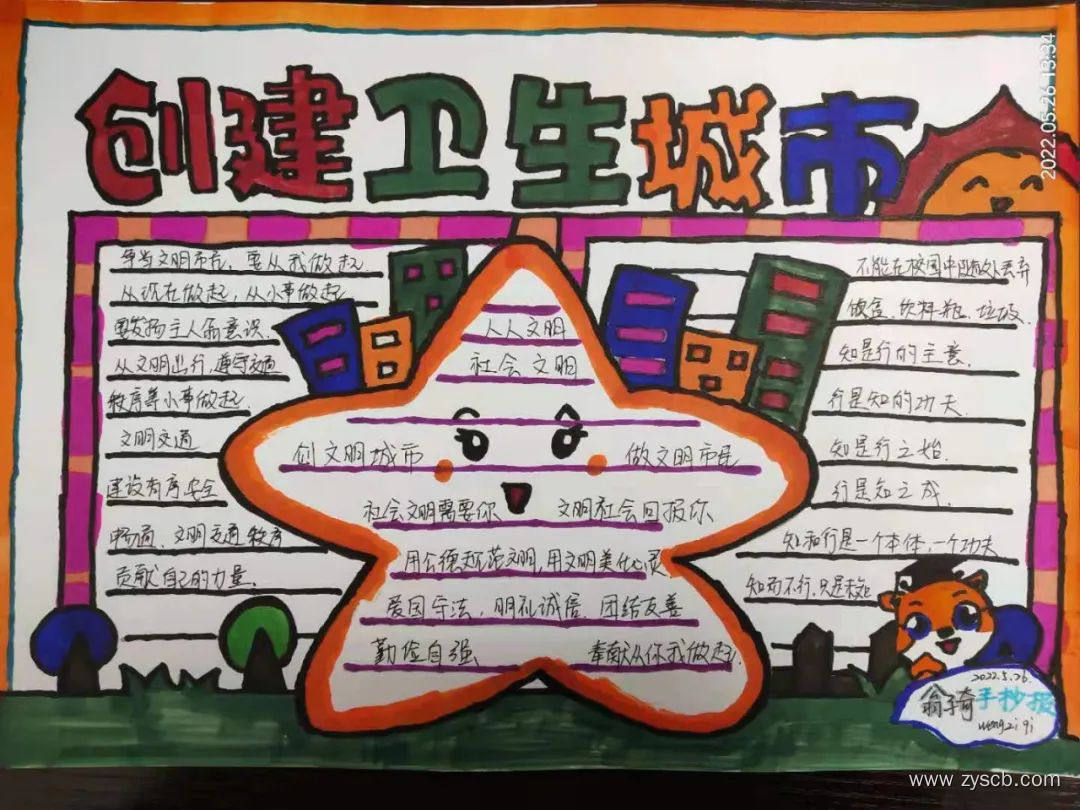 创建卫生城市
2022.05.26 13:34
争当文明市民，要从我做起
从现在做起，从小事做起
要发扬主人翁意识．
从文明出行，遵守交通
秩序等小事做起．
文明交通
建设有序安全
畅通、文明交通 教育
贡献自己的力量．
人人文明
社会文明
创文明城市 做文明市民
社会文明需要你 文明社会回报你
用公德规范文明，用文明美化心灵
爱国守法，明礼诚信，团结友善
勤俭自强 奉献从你我做起．
不能在校园中随处丢弃
饭盒．饮料瓶．垃圾．
知是行的主意．
行是知的功夫．
知是行之始．
行是知之成．
知和行是一个本体，一个功夫
知而不行，只是未知
2022.5.26.
翁子奇手抄报
weng zi qi
www.zyscb.com